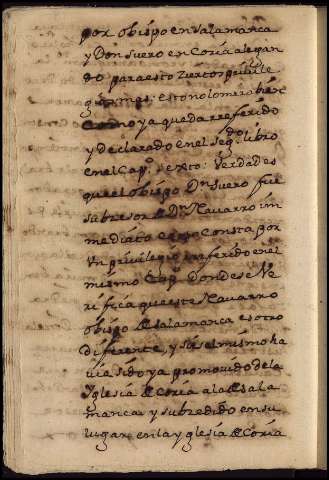 por obispo en salamanca
y Don suero en Coria alegan
do para esto ziertos pribile
gios mas esto no lo miro bien
Como ya queda rreferido
y declarado en el segdo libro
en el Capo sexto: Verdad es
que el obispo Dn suero fue
subcesor de Dn Nauarro in
mediato como Consta por
Un priuilegio rreferido en el
mismo Capo donde se Ve
rifica que este Nauarro
obispo de salamanca es otro
diferente, y si es el mismo ha
uia sido ya promouido de la
Yglesia de Coria a la de sala
manca y subcedido en su
lugar en la yglesia de Coria